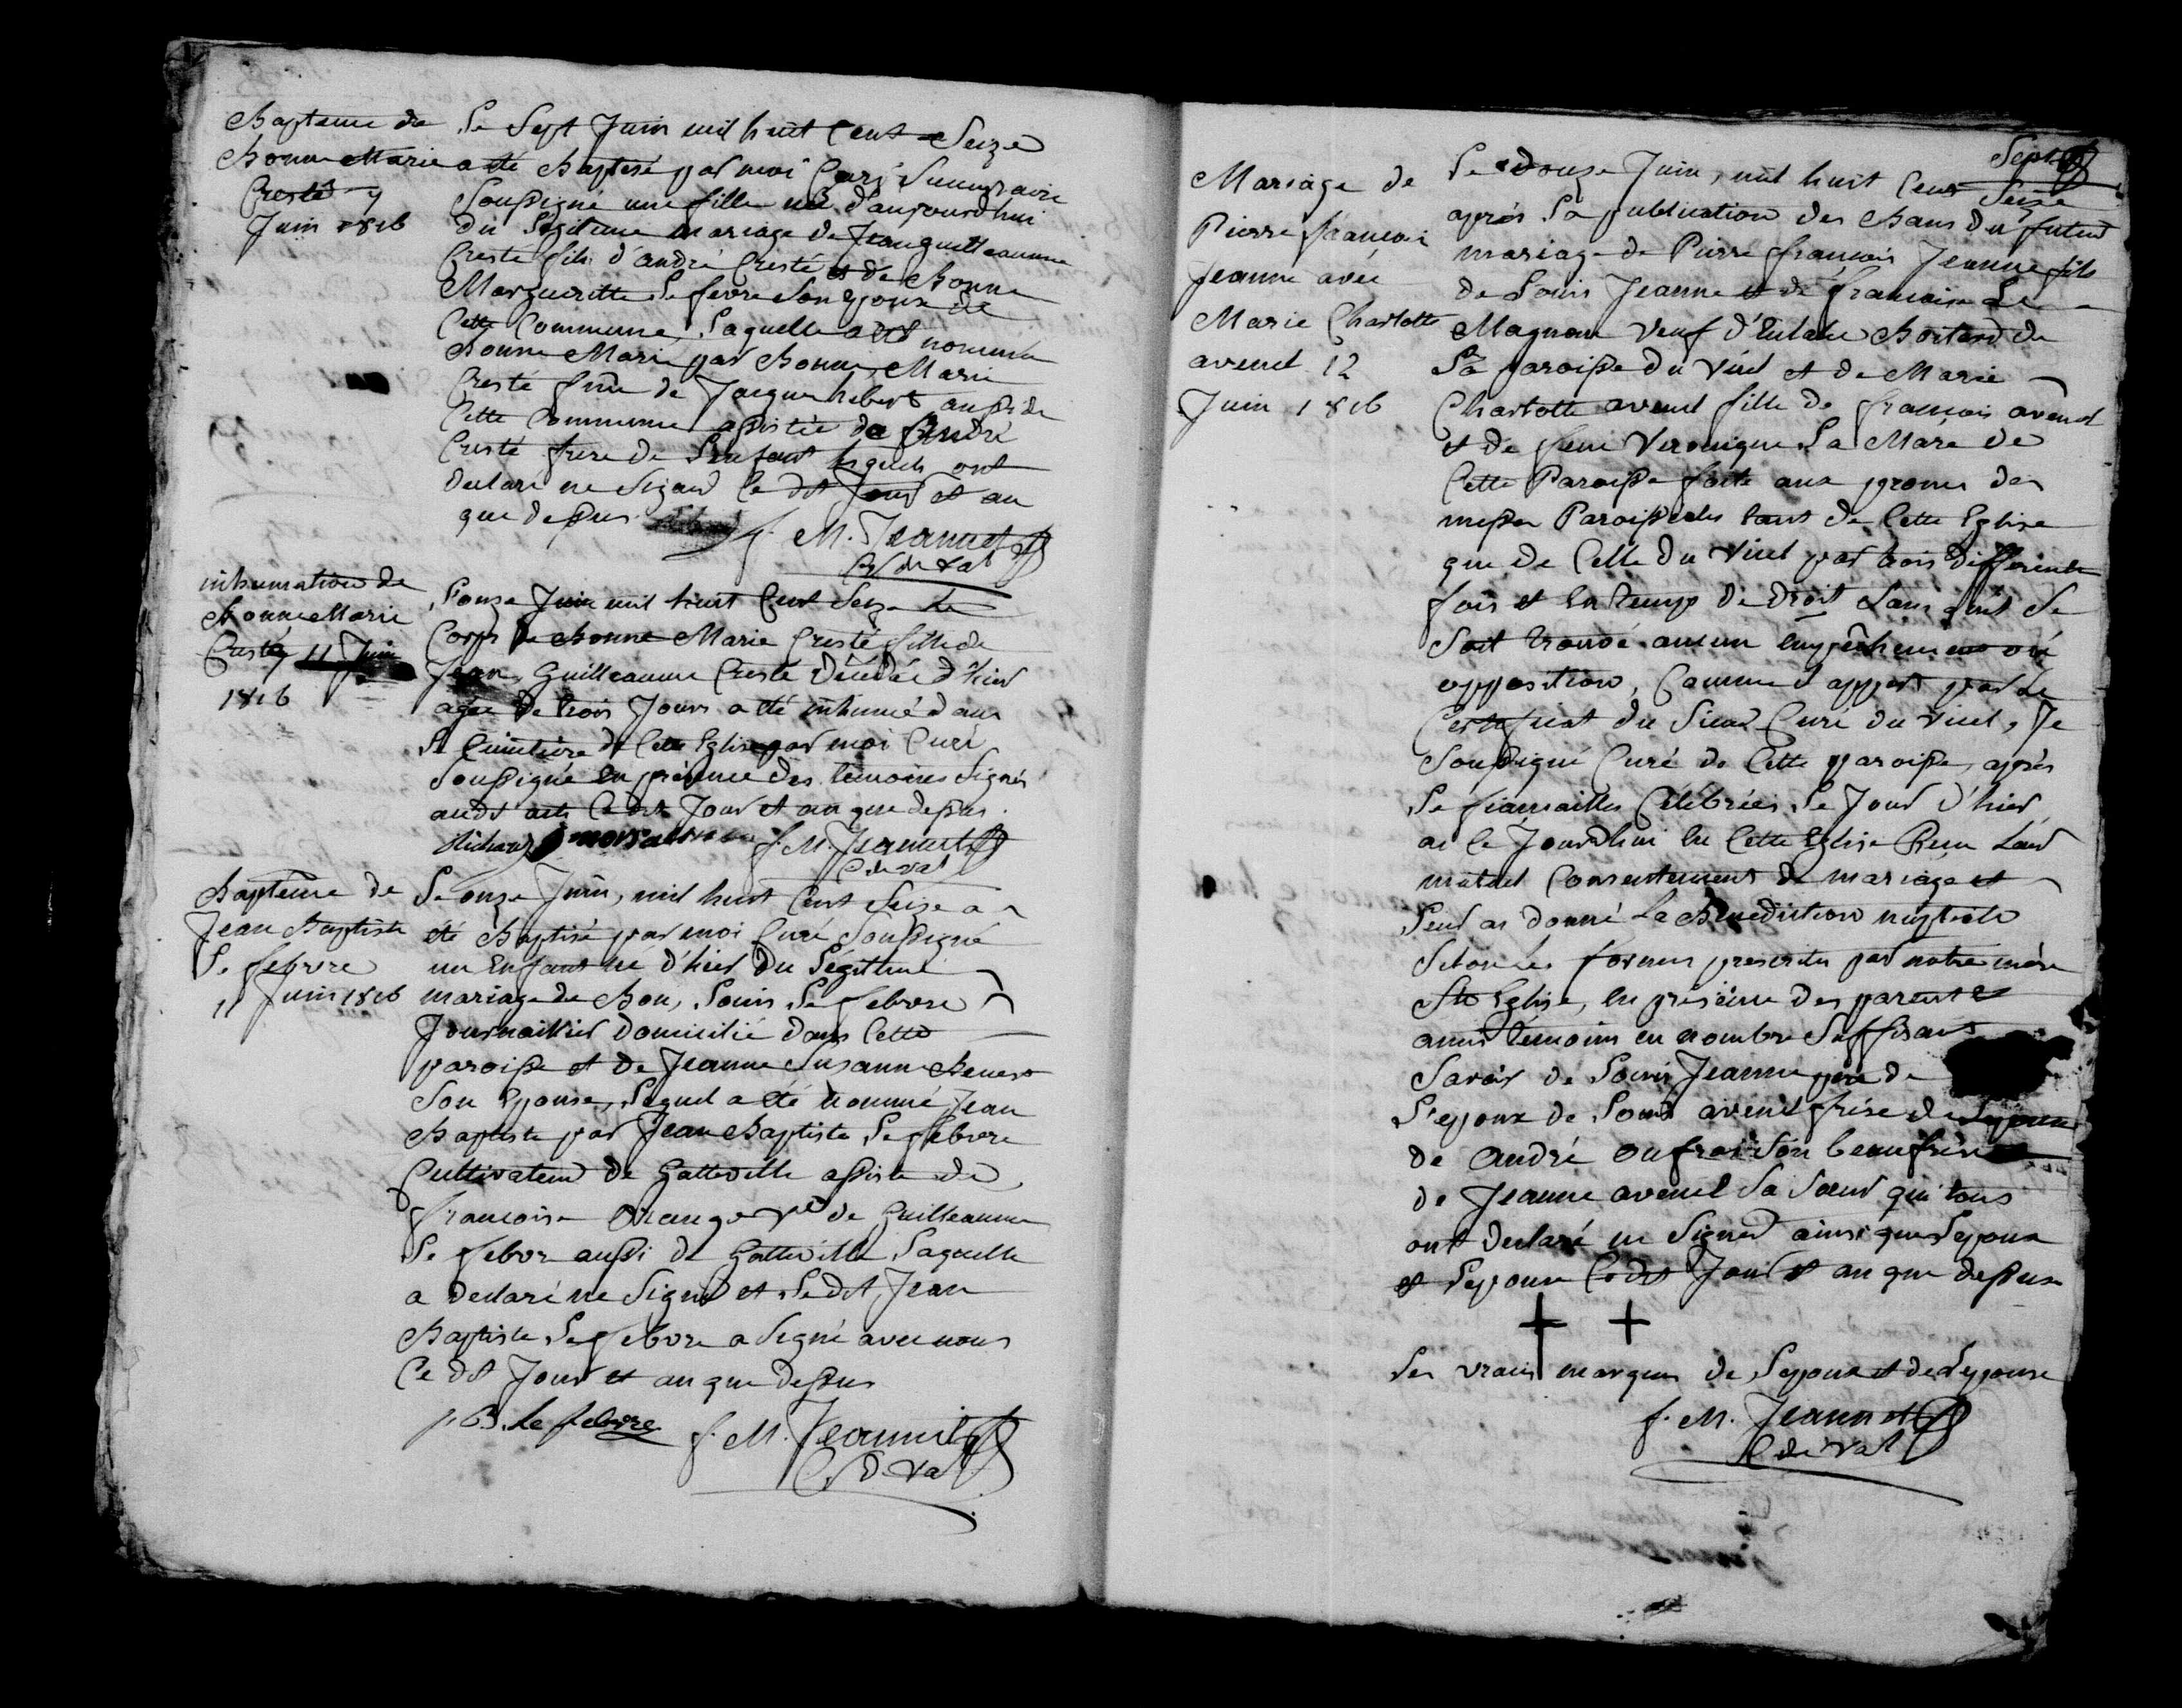 Bapteme de
Bonne Marie
Cresté 7
Juin 1816
Le Sept Juin mil huit Cent Seize
a été Baptisé par moi Curé
Soussigné une fille né d'aujourdhui
du Légitime mariage de Jean guilleaume
Cresté fils d'andré Cresté et de Bonne
Margueritte Le fevre Son epouse de
Cette Commune, Laquelle a été nommée
Bonne Marie par Bonne Marie
Cresté de Jacque hebert aussi de
Cette Commune assistée de André
Cresté frere de L'enfant lesquels ont
declaré ne Signer Ce dit Jour et an
que dessus
f. M. Jeannet
C. du Val
inhumation de
Bonne Marie
Cresté 11 Juin
1816
L'onze Juin mil huit Cent Seize Le
Corps de Bonne Marie Cresté fille de
Jean Guilleaume Cresté décédée d'hier
agée de trois Jours a été inhumé dans
Le Cimetière de Cette Eglise par moi Curé
Soussigné en présence des témoins Signés
audt acte Ce dit Jour et an que dessus.
f. M. Jeannet
C. du Val
Baptême de
Jean Baptiste
Le febvre
11 Juin 1816
Le onze Juin, mil huit Cent Seize a
été Baptisé par moi Curé Soussigné
un Enfant né d'hier du Légitime
mariage de Bon, Louis Le febvre
Journaillier domicilié dans Cette
paroisse et de Jeanne Susanne
Son Epouse, Lequel a été nommé Jean
Baptiste par Jean Baptiste Le febvre
Cultivateur de Gatteville assisté de
francoise Orange Ve de Guilleaume
Le febvr aussi de Gatteville Laquelle
a declaré ne Signer et Le dit Jean
Baptiste Le febvre a Signé avec nous
Ce dit Jour et an que dessus
J. B. Le febvre
f. M. Jeannet
C. d. Val
Sept
Mariage de
Pierre francois
Jeanne avec
Marie Charlotte
avenel 12
Juin 1816
Le douze Juin, mil huit Cent Seize
après La publication des Bans du futur
mariage de Pierre francois Jeanne fils
de Louis Jeanne et de francoise Le
Magnone Veuf d' de
La paroisse du Vicel et de Marie
Charlotte avenel fille de francois avenel
et de feue Veronique La Mare de
Cette Paroisse faite aux prones des
messes Paroissiales tant de Cette Eglise
que de Celle du Vicel par trois differente
fois et en temps de droit Sans quil Se
Soit trouvé aucun empêchement où
opposition, Comme il appert par Le
Certificat du Sieur Curé du Vicel, Je
Soussigné Curé de Cette paroisse, après
Les fiancailles Célébrées Le Jour d'hier
ai Ce Jourdhui en Cette Eglise Recu Leur
mutuel Consentement de mariage et
Leur ai donné La Bénédiction nuptiale
Selon les formes prescrites par notre mère
Ste Eglise, en présence des parents et
amis témoins en nombre Suffisant
Savoir de Louis Jeanne père de
L'epoux de Louis avenel frère de L'epouse
de André Onfroi Son beaufrère
de Jeanne avenel Sa Sœur qui tous
ont declaré ne Signer ainsi que L'epoux
et L'epouse Ce dit Jour et an que dessus
+ +
Les vraies marques de L'epoux et de L'epouse
f. M. Jeannet
C. du Val